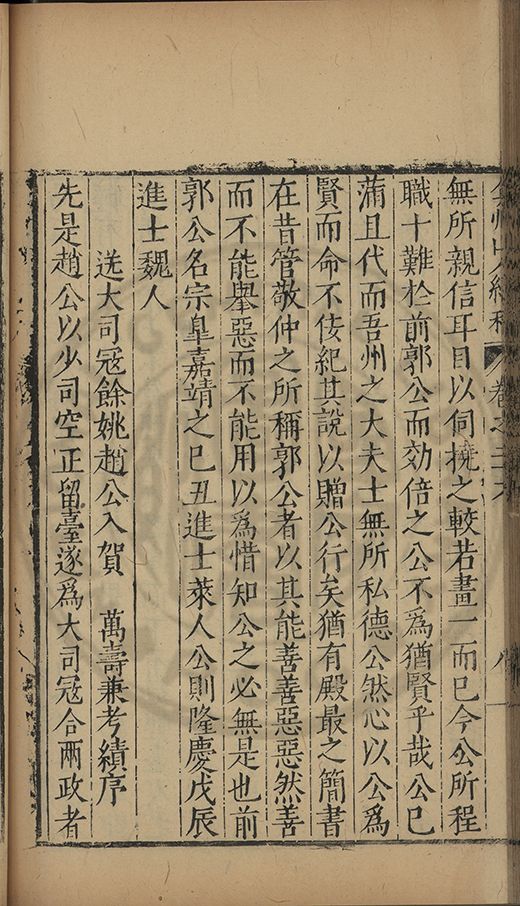 無所親信耳目以伺撓之較若畫一而已今公所程
職十難於前郭公而効倍之公不爲猶賢乎哉公已
蒲且代而吾州之大夫士無所私德公然心以公爲
賢而命不佞紀其說以贈公行矣猶有殿最之簡書
在昔管敬仲之所稱郭公者以其能善善惡惡然善
而不能舉惡而不能用以爲惜知公之必無是也前
郭公名宗臯嘉靖之巳丑進士萊人公則隆慶戊辰
進士魏人
送大司寇餘姚趙公入賀 萬壽兼考績序
先是趙公以少司空正留臺遂爲大司寇合兩政者